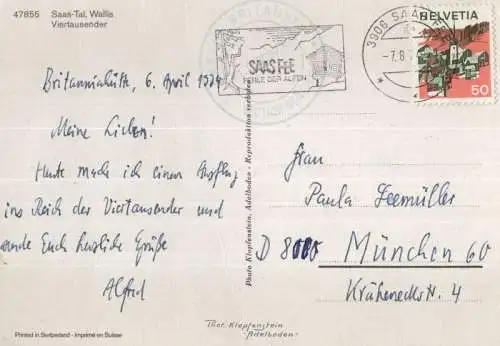 47855 Saas-Tal, Wallis
Viertausender
Britanniahütte, 6. April 1974
Meine Lieben!
Heute mach ich einen Ausflug
ins Reich der Viertausender und
sende Euch herzliche Grüße
Alfred
Printed in Switzerland - Imprimé en Suisse
Photo Klopfenstein, Adelboden - Reproduktion verboten
Thor. Klopfenstein
Adelboden
SAAS FEE
PERLE DER ALPEN
3906 SAAS-FEE
HELVETIA
50
Frau
Paula Seemüller
D 8000 München 60
Krähenecks tr. 4